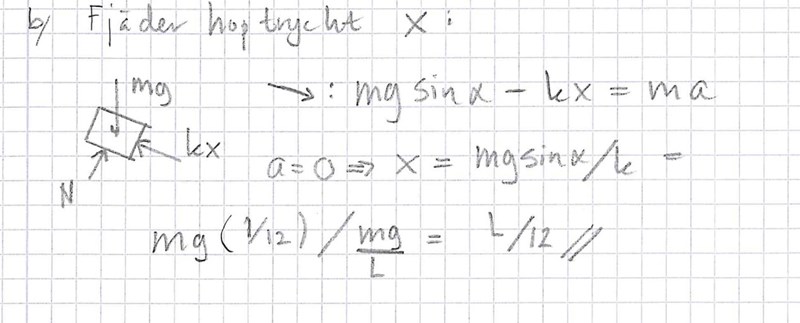 b/ Fjäder hoptryckt x :
mg
→ : mg sinα - kx = ma
kx
N
a = 0 ⇒ x = mg sinα/k =
mg (1/12) / mg/L = L/12 //